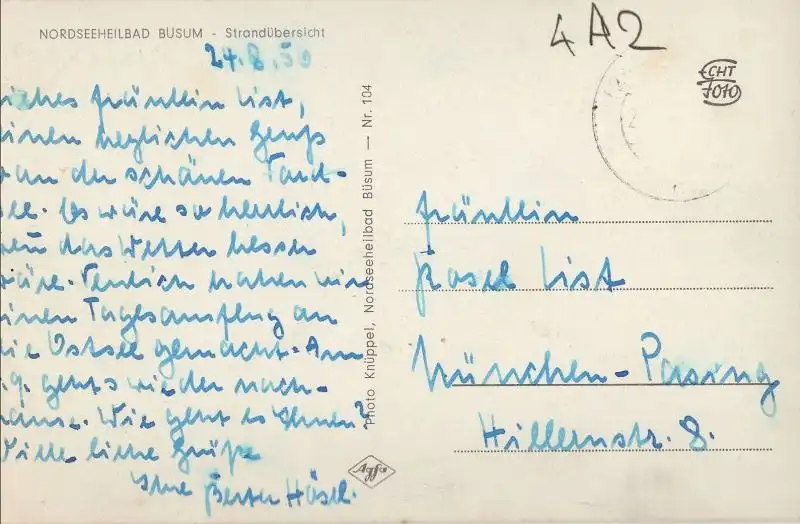 NORDSEEHEILBAD BÜSUM - Strandübersicht
24.8.50
iches Fräulein List,
inen herzlichen Gruß
an der schönen
ee. Es wäre so herrlich,
enn das Wetter besser
wäre. Neulich haben wir
inen Tagesausflug an
ie Ostsee gemacht. Am
.9. geht's wieder nach-
hause. Wie geht es Ihnen?
Viele liebe Grüße
Ihre Häsel.
Photo Knüppel, Nordseeheilbad Büsum — Nr. 104
Agfa
4A2
ECHT
FOTO
Fräulein
Rosel List
München-Pasing
Hillernstr. 8.